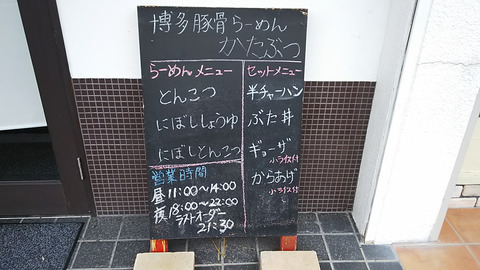 博多豚骨らーめん
かたぶつ
らーめんメニュー
とんこつ
にぼししょうゆ
にぼしとんこつ
営業時間
昼11:00〜14:00
夜18:00〜22:00
ラストオーダー
21:30
セットメニュー
半チャーハン
ぶた丼
ギョーザ
小ライス付
からあげ
小ライス付